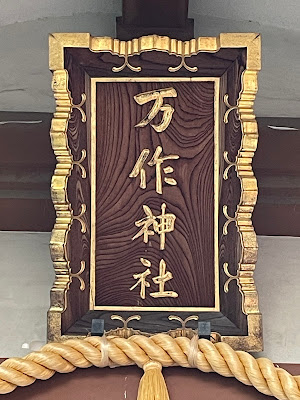 万作神社